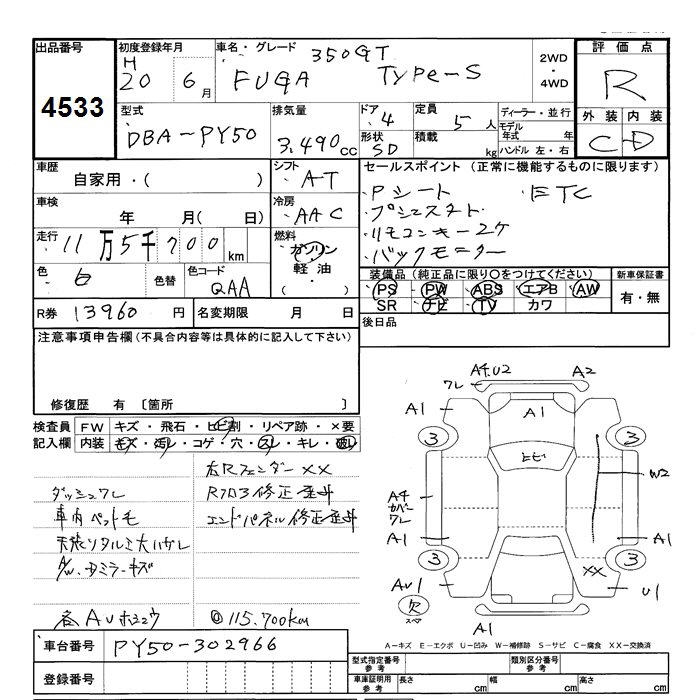 出品番号
4533
初度登録年月
H
20 6月
車名・グレード
350GT
FUGA Type-S
2WD
・
4WD
評価点
R
外装 内装
C D
型式
DBA-PY50
排気量
3,490cc
ドア 4
形状 SD
定員 5人
積載 kg
ディーラー・並行
モデル年式 年
ハンドル 左・右
車歴
自家用・( )
シフト
AT
車検
年 月( 日)
冷房
AAC
走行
11万5千700km
燃料
ガソリン
・
軽油
・
( )
色
白
色替
色コード
QAA
R券 13960円
名変期限 月 日
セールスポイント(正常に機能するものに限ります)
・Pシート ・ETC
・プシュスタート
・リモコンキー2ケ
・バックモニター
装備品(純正品に限り○をつけてください)
PS PW ABS エアB AW
SR ナビ TV カワ
新車保証書
有・無
後日品
注意事項申告欄(不具合内容等は具体的に記入して下さい)
修復歴 有 〔箇所 〕
検査員
記入欄
FW キズ・飛石・ヒビ割・リペア跡・×要
内装 キズ・汚レ・コゲ・穴・スレ・キレ・破レ
右Rフェンダー××
ダッシュワレ
Rフロア修正歪み
車内ペット毛
エンドパネル修正歪み
天張リタルミ大いかレ
A/W・ドミラーキズ
各AUホシュウ
◎115,700km
車台番号 PY50-302966
登録番号
A4.U2
ワレ
A2
A1
A1
A1
3
3
ヒビ
W2
A4
カバー
ワレ
A1
A1
3
3
××
AU1
U1
欠
スペア
A1
A-キズ E-エクボ U-凹み W-補修跡 S-サビ C-腐食 XX-交換済
型式指定番号
参考
類別区分番号
参考
車庫証明用
参考
長さ cm
幅 cm
高さ cm